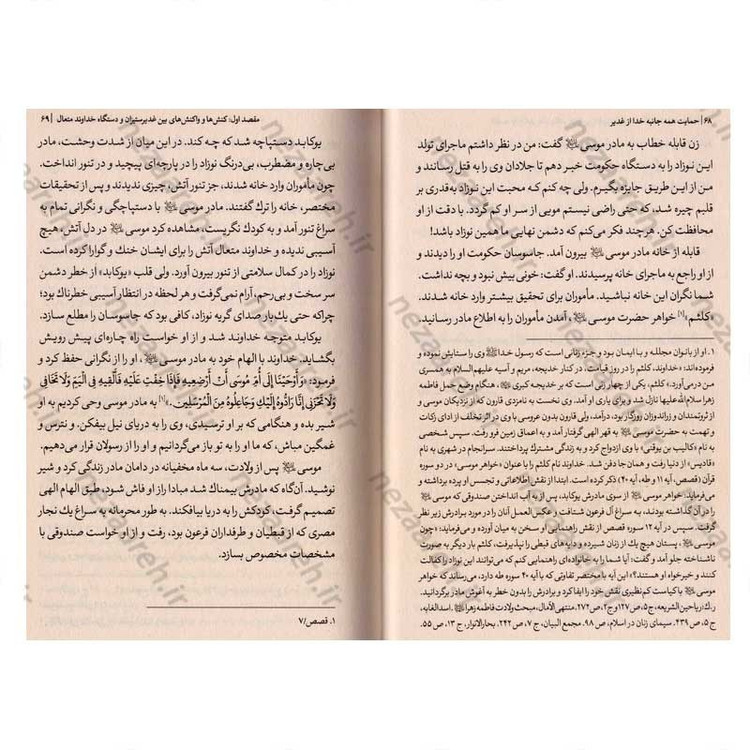 ۶۸ | حمایت همه جانبه خدا از غدیر
زن قابله خطاب به مادر موسی ﷺ گفت: من در نظر داشتم ماجرای تولد
این نوزاد را به دستگاه حکومت خبر دهم تا جلادان وی را به قتل رسانند و
من از این طریق جایزه بگیرم. ولی چه کنم که محبت این نوزاد به‌قدری بر
قلبم چیره شد، که حتی راضی نیستم مویی از سر او کم گردد. با دقت از او
محافظت کن. هرچند فکر می‌کنم که دشمن نهایی ما همین نوزاد باشد!
قابله از خانه مادر موسی بیرون آمد. جاسوسان حکومت او را دیدند و
از او راجع به ماجرای خانه پرسیدند. او گفت: خونی بیش نبود و بچه نداشت.
شما نگران این خانه نباشید. مأموران برای تحقیق بیشتر وارد خانه شدند.
«کلثم»[۱] خواهر حضرت موسی، آمدن مأموران را به اطلاع مادر رسانید.
۱. او از بانوان مجلله و با ایمان بود و جزء زنانی است که رسول خدا وی را ستایش نموده و
فرموده‌اند: «خداوند، کلثم را در روز قیامت، در کنار خدیجه، مریم و آسیه علیهم‌السلام به همسری
من درمی‌آورد.» کلثم، یکی از چهار زنی است که بر خدیجه کبری، هنگام وضع حمل فاطمه
زهرا سلام الله علیها نازل شد و برای یاری او آمد. وی نخست به نامزدی قارون که از نزدیکان موسی و
از ثروتمندان و زراندوزان روزگار بود، درآمد. ولی قارون بدون عروسی با وی در اثر تخلف از ادای زکات
و تهمت به حضرت موسی به قهر الهی گرفتار آمد و به اعماق زمین فرو رفت. سپس شخصی
به نام «کالیب بن یوقنی» با وی ازدواج کرد و به زندگی مشترک پرداختند. سرانجام در شهری به نام
«قادیس» از دنیا رفت و همان جا دفن شد. خداوند نام کلثم را با عنوان «خواهر موسی» در دو سوره
قرآن (قصص، آیه ۱۱ و طه، آیه ۴۰) ذکر کرده است. ابتدا از نقش اطلاعاتی و تجسس او پرده برداشته و
می‌فرماید: خواهر موسی از سوی مادرش یوکابد، پس از به آب انداختن صندوقی که موسی
را در آن گذاشته بودند، به سراغ آل فرعون شتافت و عکس العمل آنان را در مورد برادرش زیر نظر
گرفت. سپس در آیه ۱۲ سوره قصص از نقش راهنمایی او سخن به میان آورده و می‌فرماید: «چون
موسی، پستان هیچ یک از زنان شیرده و دایه های قبطی را نپذیرفت، کلثم بار دیگر به صورت
ناشناخته جلو آمد و گفت: آیا شما را به خانواده‌ای راهنمایی کنم که می‌توانند این نوزاد را کفالت
کنند و خیرخواه او هستند؟» این آیه با مختصر تفاوتی که با آیه ۴۰ سوره طه دارد، می‌رساند که خواهر
موسی با کیاست کم‌نظیری نقش خود را ایفا کرد و برادرش را بدون خطر به آغوش مادر برگردانید.
ر.ک: ریاحین الشریعه، ج ۵، ص ۱۲۷ و ج ۲، ص ۲۷۲. منتهی الآمال، مبحث ولادت فاطمه زهرا. اسد الغابه،
ج ۵، ص ۲۳۹. سیمای زنان در اسلام، ص ۹۸. مجمع البیان، ج ۷، ص ۲۴۲. بحار الانوار، ج ۱۳، ص ۵۵.
مقصد اول: کنش‌ها و واکنش‌های بین غدیرستیزان و دستگاه خداوند متعال | ۶۹
یوکابد دستپاچه شد که چه کند. در این میان از شدت وحشت، مادر
بی‌چاره و مضطرب، بی‌درنگ نوزاد را در پارچه ای پیچید و در تنور انداخت.
چون مأموران وارد خانه شدند، جز تنور آتش، چیزی ندیدند و پس از تحقیقات
مختصر، خانه را ترک گفتند. مادر موسی با دستپاچگی و نگرانی تمام به
سراغ تنور آمد و به کودک نگریست. مشاهده کرد موسی در دل آتش، هیچ
آسیبی ندیده و خداوند متعال آتش را برای ایشان خنک و گوارا کرده است.
نوزاد را در کمال سلامتی از تنور بیرون آورد. ولی قلب «یوکابد» از خطر دشمن
سرسخت و بی‌رحم، آرام نمی‌گرفت و هر لحظه در انتظار آسیبی خطرناک بود؛
چراکه حتی یک‌بار صدای گریه نوزاد، کافی بود که جاسوسان را مطلع سازد.
یوکابد متوجه خداوند شد و از او خواست راه چاره‌ای پیش رویش
بگشاید. خداوند با الهام خود به مادر موسی، او را از نگرانی حفظ کرد و
فرمود: ﴿وَأَوْحَيْنَا إِلَى أُمِّ مُوسَى أَنْ أَرْضِعِيهِ فَإِذَا خِفْتِ عَلَيْهِ فَأَلْقِيهِ فِي الْيَمِّ وَلَا تَخَافِي
وَلَا تَحْزَنِي إِنَّا رَادُّوهُ إِلَيْكِ وَجَاعِلُوهُ مِنَ الْمُرْسَلِينَ﴾.[۱] به مادر موسی وحی کردیم به او
شیر بده و هنگامی که بر او ترسیدی، وی را به دریای نیل بیفکن. و نترس و
غمگین مباش، که ما او را به تو باز می‌گردانیم و او را از رسولان قرار می‌دهیم.
موسی پس از ولادت، سه ماه مخفیانه در دامان مادر زندگی کرد و شیر
نوشید. آن‌گاه که مادرش بیمناک شد مبادا راز او فاش شود، طبق الهام الهی
تصمیم گرفت، کودکش را به دریا بیافکند. به طور محرمانه به سراغ یک نجار
مصری که از قبطیان و طرفداران فرعون بود، رفت و از او خواست صندوقی با
مشخصات مخصوص بسازد.
۱. قصص/۷